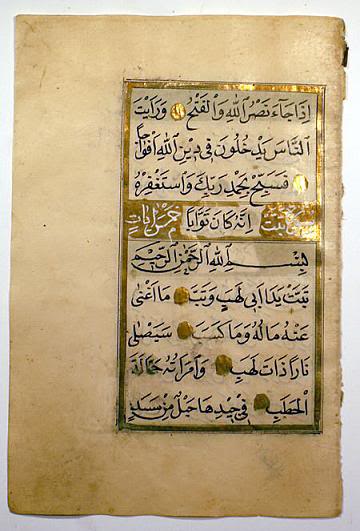 اِذَا جَاۤءَ نَصْرُ اللّٰهِ وَالْفَتْحُ وَرَاَيْتَ
النَّاسَ يَدْخُلُونَ فِى دِينِ اللّٰهِ اَفْوَاجًا
فَسَبِّحْ بِحَمْدِ رَبِّكَ وَاسْتَغْفِرْهُ
تبت اِنَّهُ كَانَ تَوَّابًا خمس ايات
بِسْمِ اللّٰهِ الرَّحْمٰنِ الرَّحِيْمِ
تَبَّتْ يَدَا اَبِى لَهَبٍ وَتَبَّ مَا اَغْنٰى
عَنْهُ مَالُهُ وَمَا كَسَبَ سَيَصْلٰى
نَارًا ذَاتَ لَهَبٍ وَامْرَاَتُهُ حَمَّالَةَ
الْحَطَبِ فِى جِيْدِهَا حَبْلٌ مِنْ مَسَدٍ